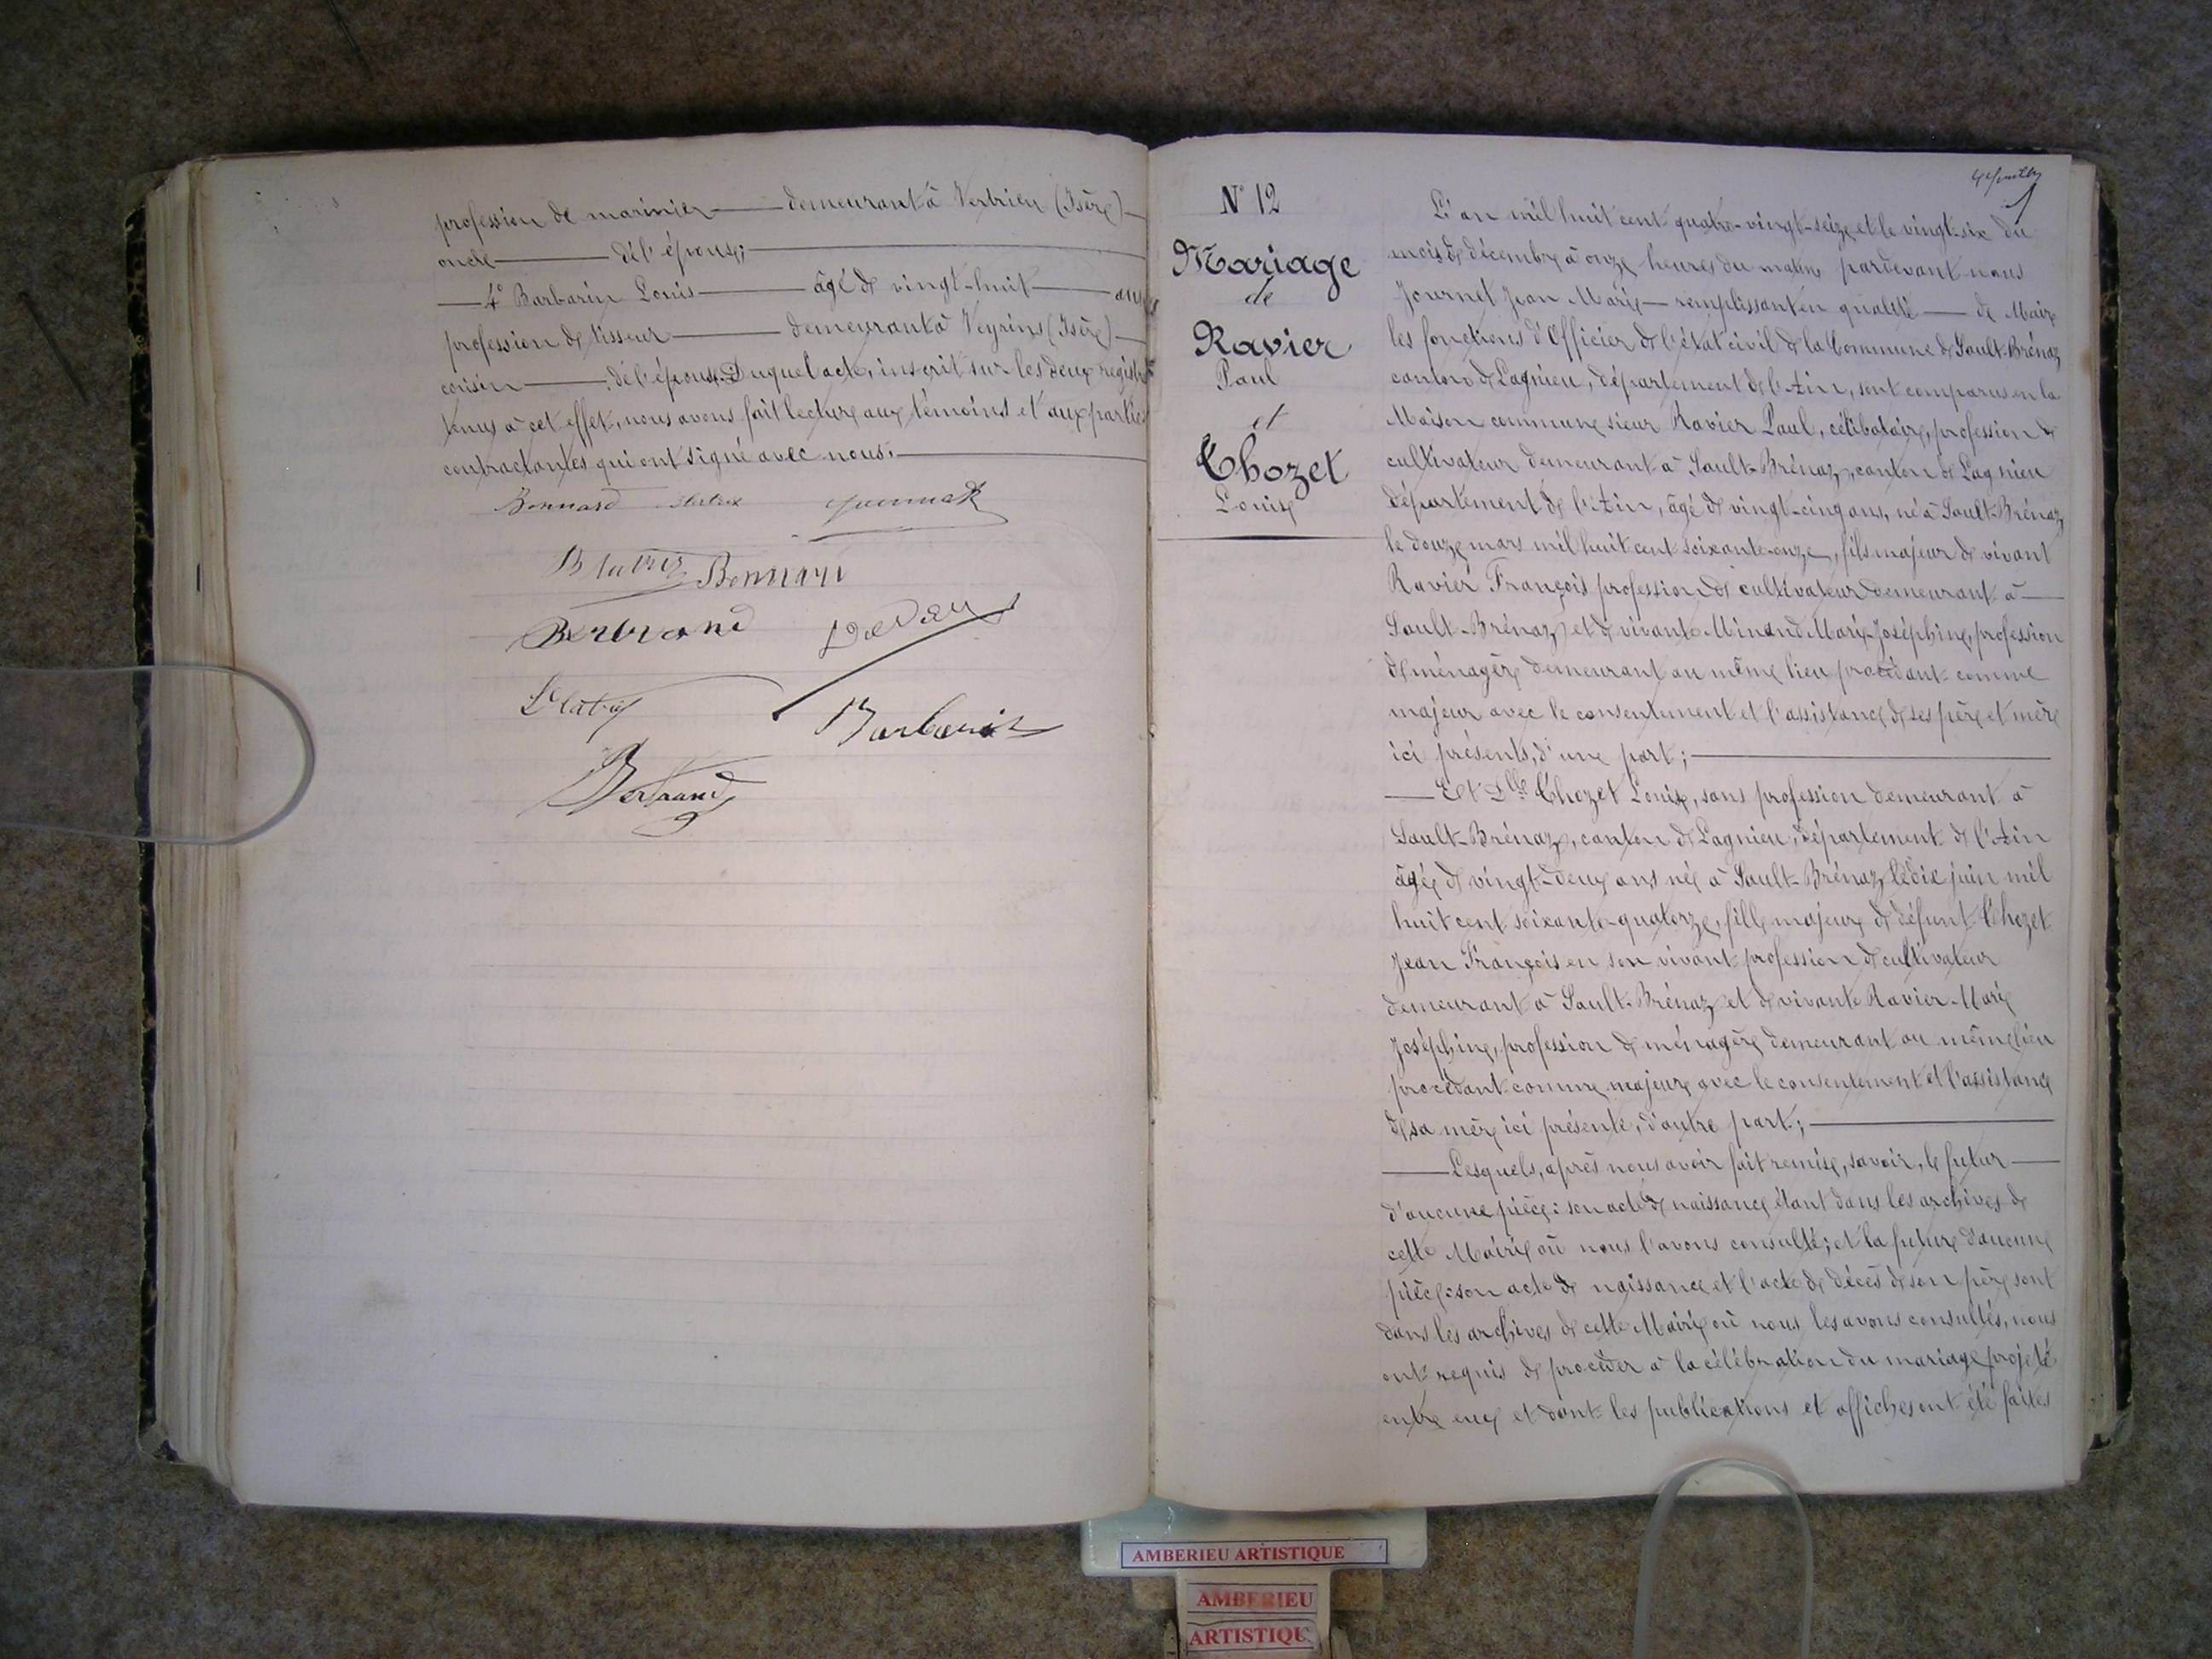 profession de marinier — demeurant à Vertrieu (Isère) —
oncle — de l'épouse; —
— 4° Barbarin Louis — âgé de vingt-huit — ans
profession de tisseur — demeurant à Veyrins (Isère) —
cousin — de l'épouse. Duquel acte, inscrit sur les deux registres
tenus à cet effet, nous avons fait lecture aux témoins et aux parties
contractantes qui ont signé avec nous. —
Bonnard
Bonnard
Bertrand
Barbarin
Bertrand
N° 12
Mariage
de
Ravier
Paul
et
Chozet
Louise
L'an mil huit cent quatre-vingt-seize et le vingt-six du
mois de décembre à onze heures du matin pardevant nous
Journet Jean Marie — remplissant en qualité — de Maire
les fonctions d'Officier de l'état civil de la Commune de Sault-Brénaz
canton de Lagnieu, département de l'Ain, sont comparus en la
Maison commune sieur Ravier Paul, célibataire, profession de
cultivateur demeurant à Sault-Brénaz, canton de Lagnieu
département de l'Ain, âgé de vingt-cinq ans, né à Sault-Brénaz
le douze mars mil huit cent soixante-onze, fils majeur de vivant
Ravier François profession de cultivateur demeurant à —
Sault-Brénaz et de vivante Minand Marie-Joséphine, profession
de ménagère demeurant au même lieu procédant comme
majeur avec le consentement et l'assistance de ses père et mère
ici présents, d'une part; —
— Et Dlle Chozet Louise, sans profession demeurant à
Sault-Brénaz, canton de Lagnieu, département de l'Ain
âgée de vingt-deux ans née à Sault-Brénaz le dix juin mil
huit cent soixante-quatorze, fille majeure de défunt Chozet
Jean François en son vivant profession de cultivateur
demeurant à Sault-Brénaz et de vivante Ravier Marie
Joséphine, profession de ménagère demeurant au même lieu
procédant comme majeure avec le consentement et l'assistance
de sa mère ici présente, d'autre part; —
— Lesquels, après nous avoir fait remise, savoir, le futur —
d'aucune pièce: son acte de naissance étant dans les archives de
cette Mairie où nous l'avons consulté; et la future d'aucune
pièce: son acte de naissance et l'acte de décès de son père sont
dans les archives de cette Mairie où nous les avons consultés, nous
ont requis de procéder à la célébration du mariage projeté
entre eux et dont les publications et affiches ont été faites
AMBERIEU ARTISTIQUE
AMBERIEU
ARTISTIQUE